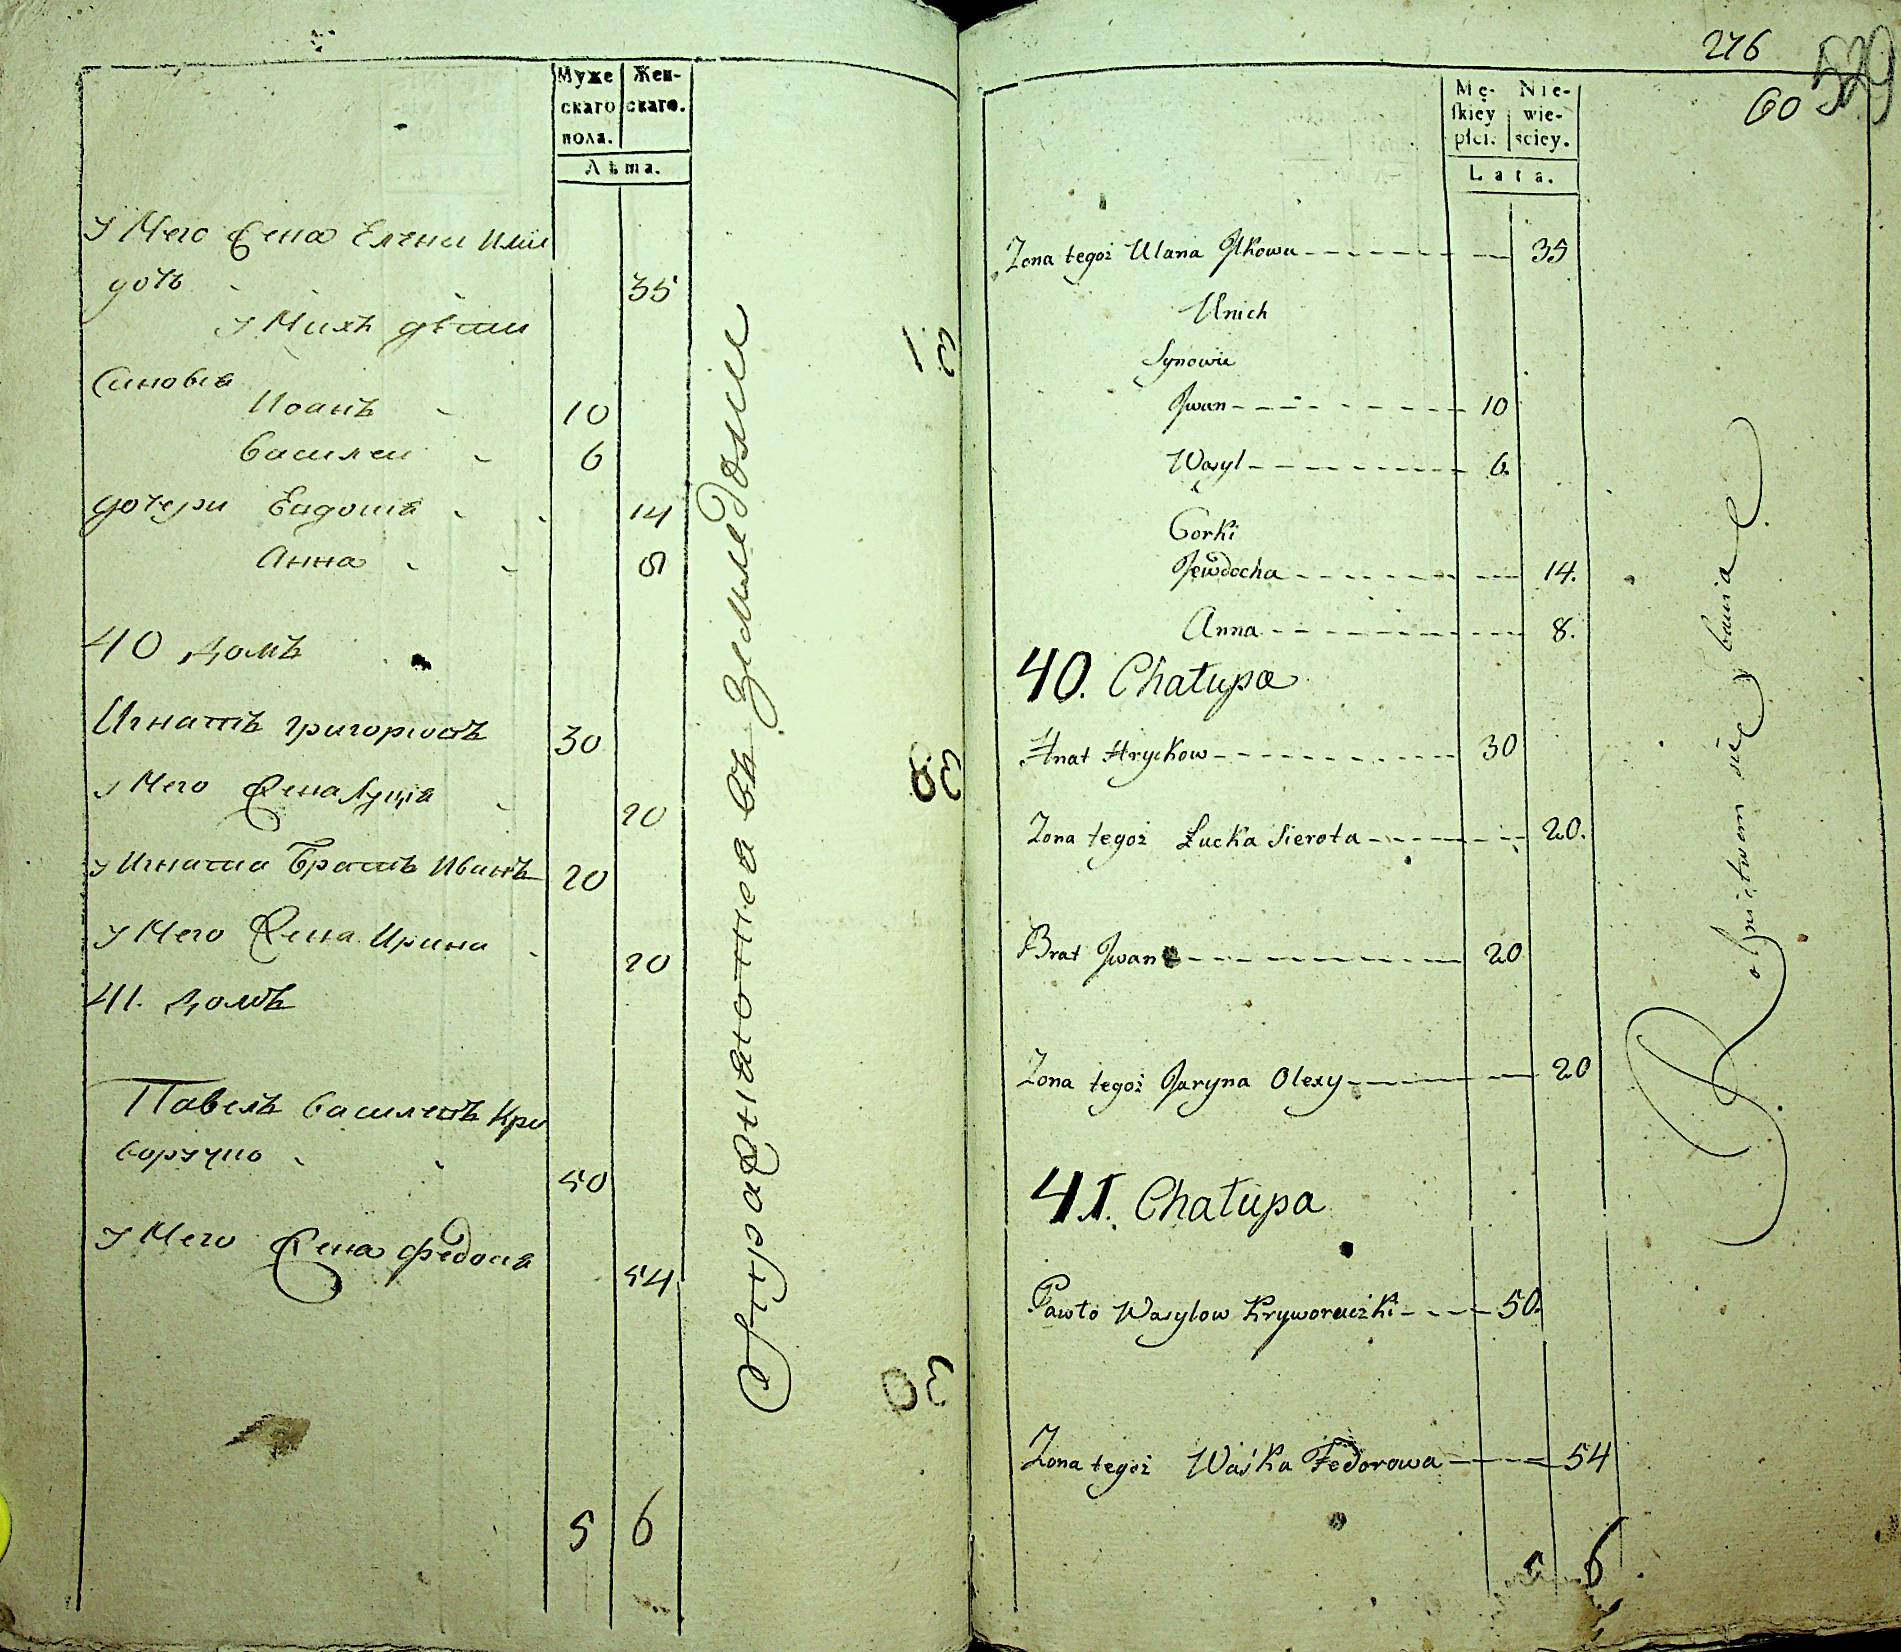 Муже
скаго
пола.
Жен-
скаго.
Лѣта.
У Него Жена Елена Илии
дочь 35
У Нихъ дѣти
Синовья
Иоанъ 10
Василеи 6
дочери Евдокия 14
Анна 8
40 домъ
Игнатъ Григоріовъ 30
у Него Жена Луція 20
у Игнатиа Братъ Иванъ 20
у Него Жена Ирина 20
41. домъ
Павелъ Василевъ Кри
воручко 50
у Него Жена Федосия 54
5 6
упражняютца въ Земледелии
31
38
30
276
60 529
Mę-
skiey
płci.
Nie-
wie-
sciey.
Lata.
Zona tegoż Ulana Jlkowa 35
U nich
Synowie
Jwan 10
Wasyl 6.
Corki
Jewdocha 14.
Anna 8.
40. Chałupa
Hnat Hryckow 30
Zona tegoż Łucka Sierota 20.
Brat Jwan 20
Zona tegoż Jaryna Olexy 20
41. Chałupa
Pawło Wasylow Kryworuczki 50.
Zona tegoż Waśka Fedorowa 54
5 6
Rolnictwem się bawia